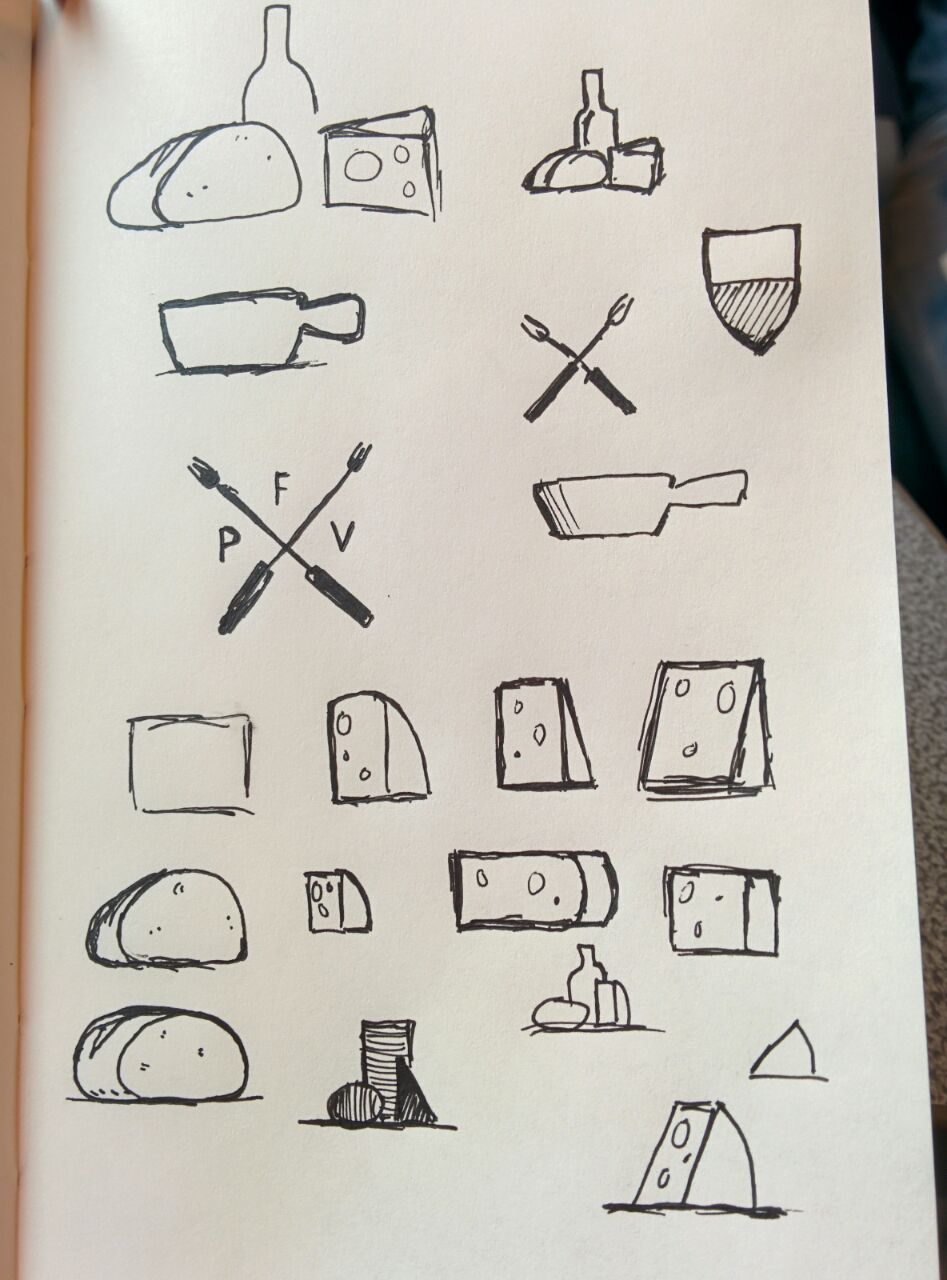 F
P V